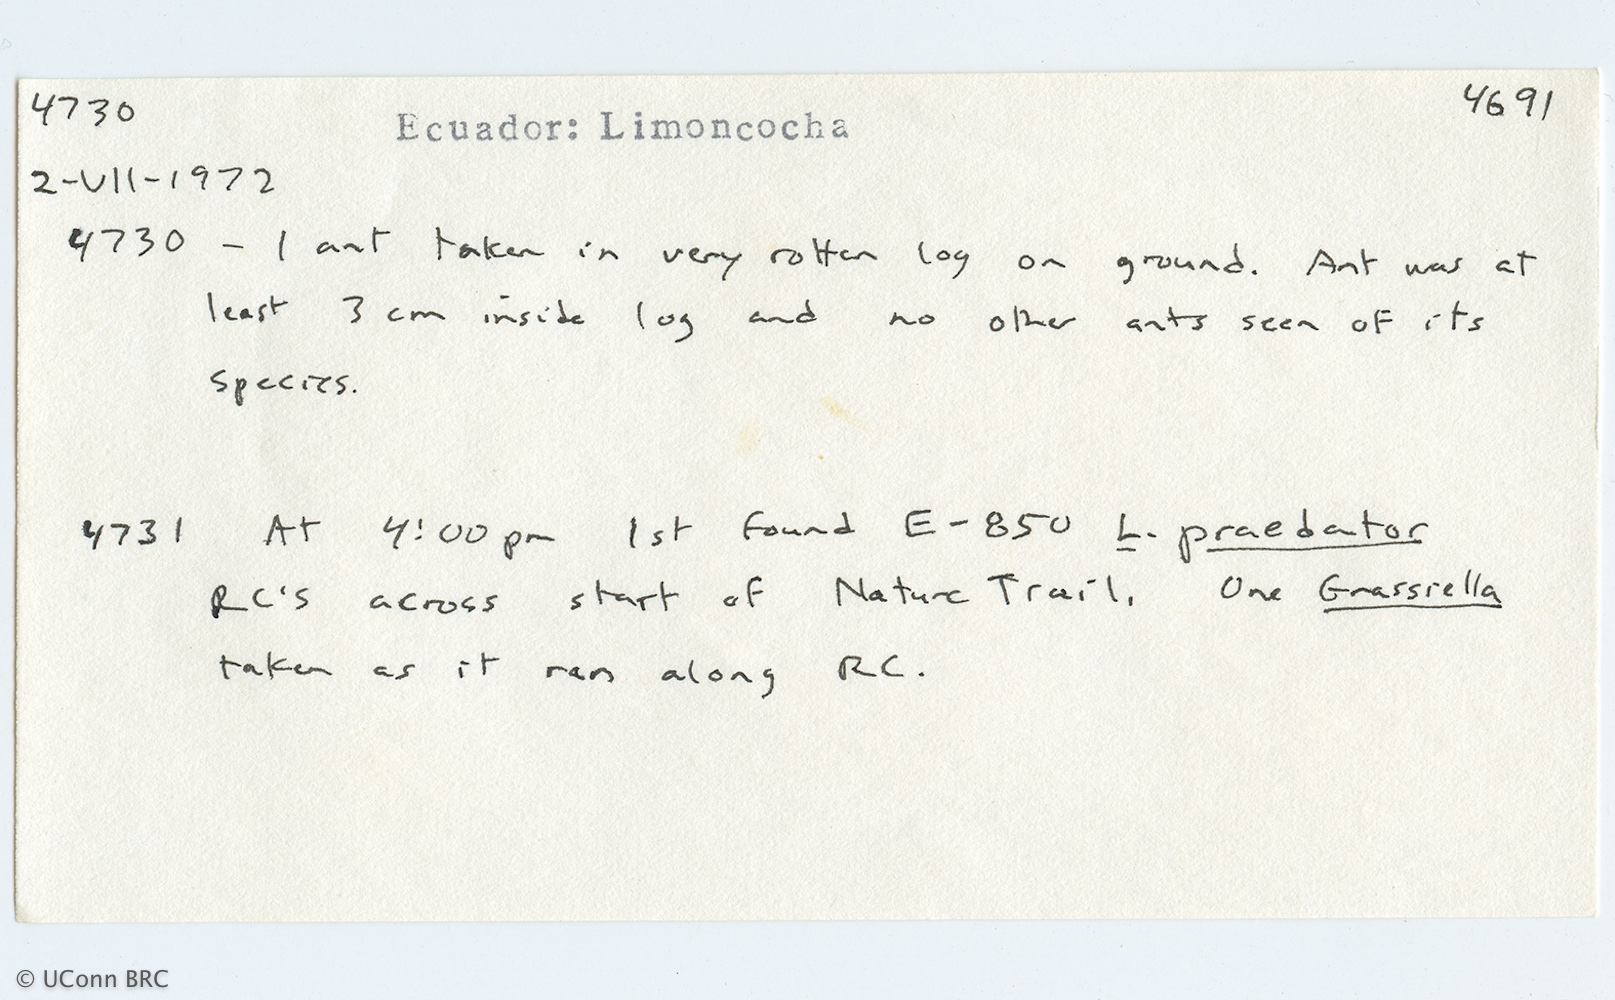 4730 Ecuador: Limoncocha 4691
2-VII-1972
4730 - 1 ant taken in very rotten log on ground. Ant was at
least 3 cm inside log and no other ants seen of its
species.
4731 At 4:00 pm 1st found E-850 L. praedator
RC's across start of Nature Trail. One Grassiella
taken as it ran along RC.
© UConn BRC